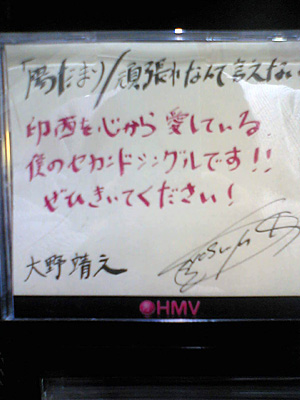 「陽だまり/頑張れなんて言えない
印西を心から愛している
僕のセカンドシングルです!!
ぜひきいてください!
大野靖之
HMV